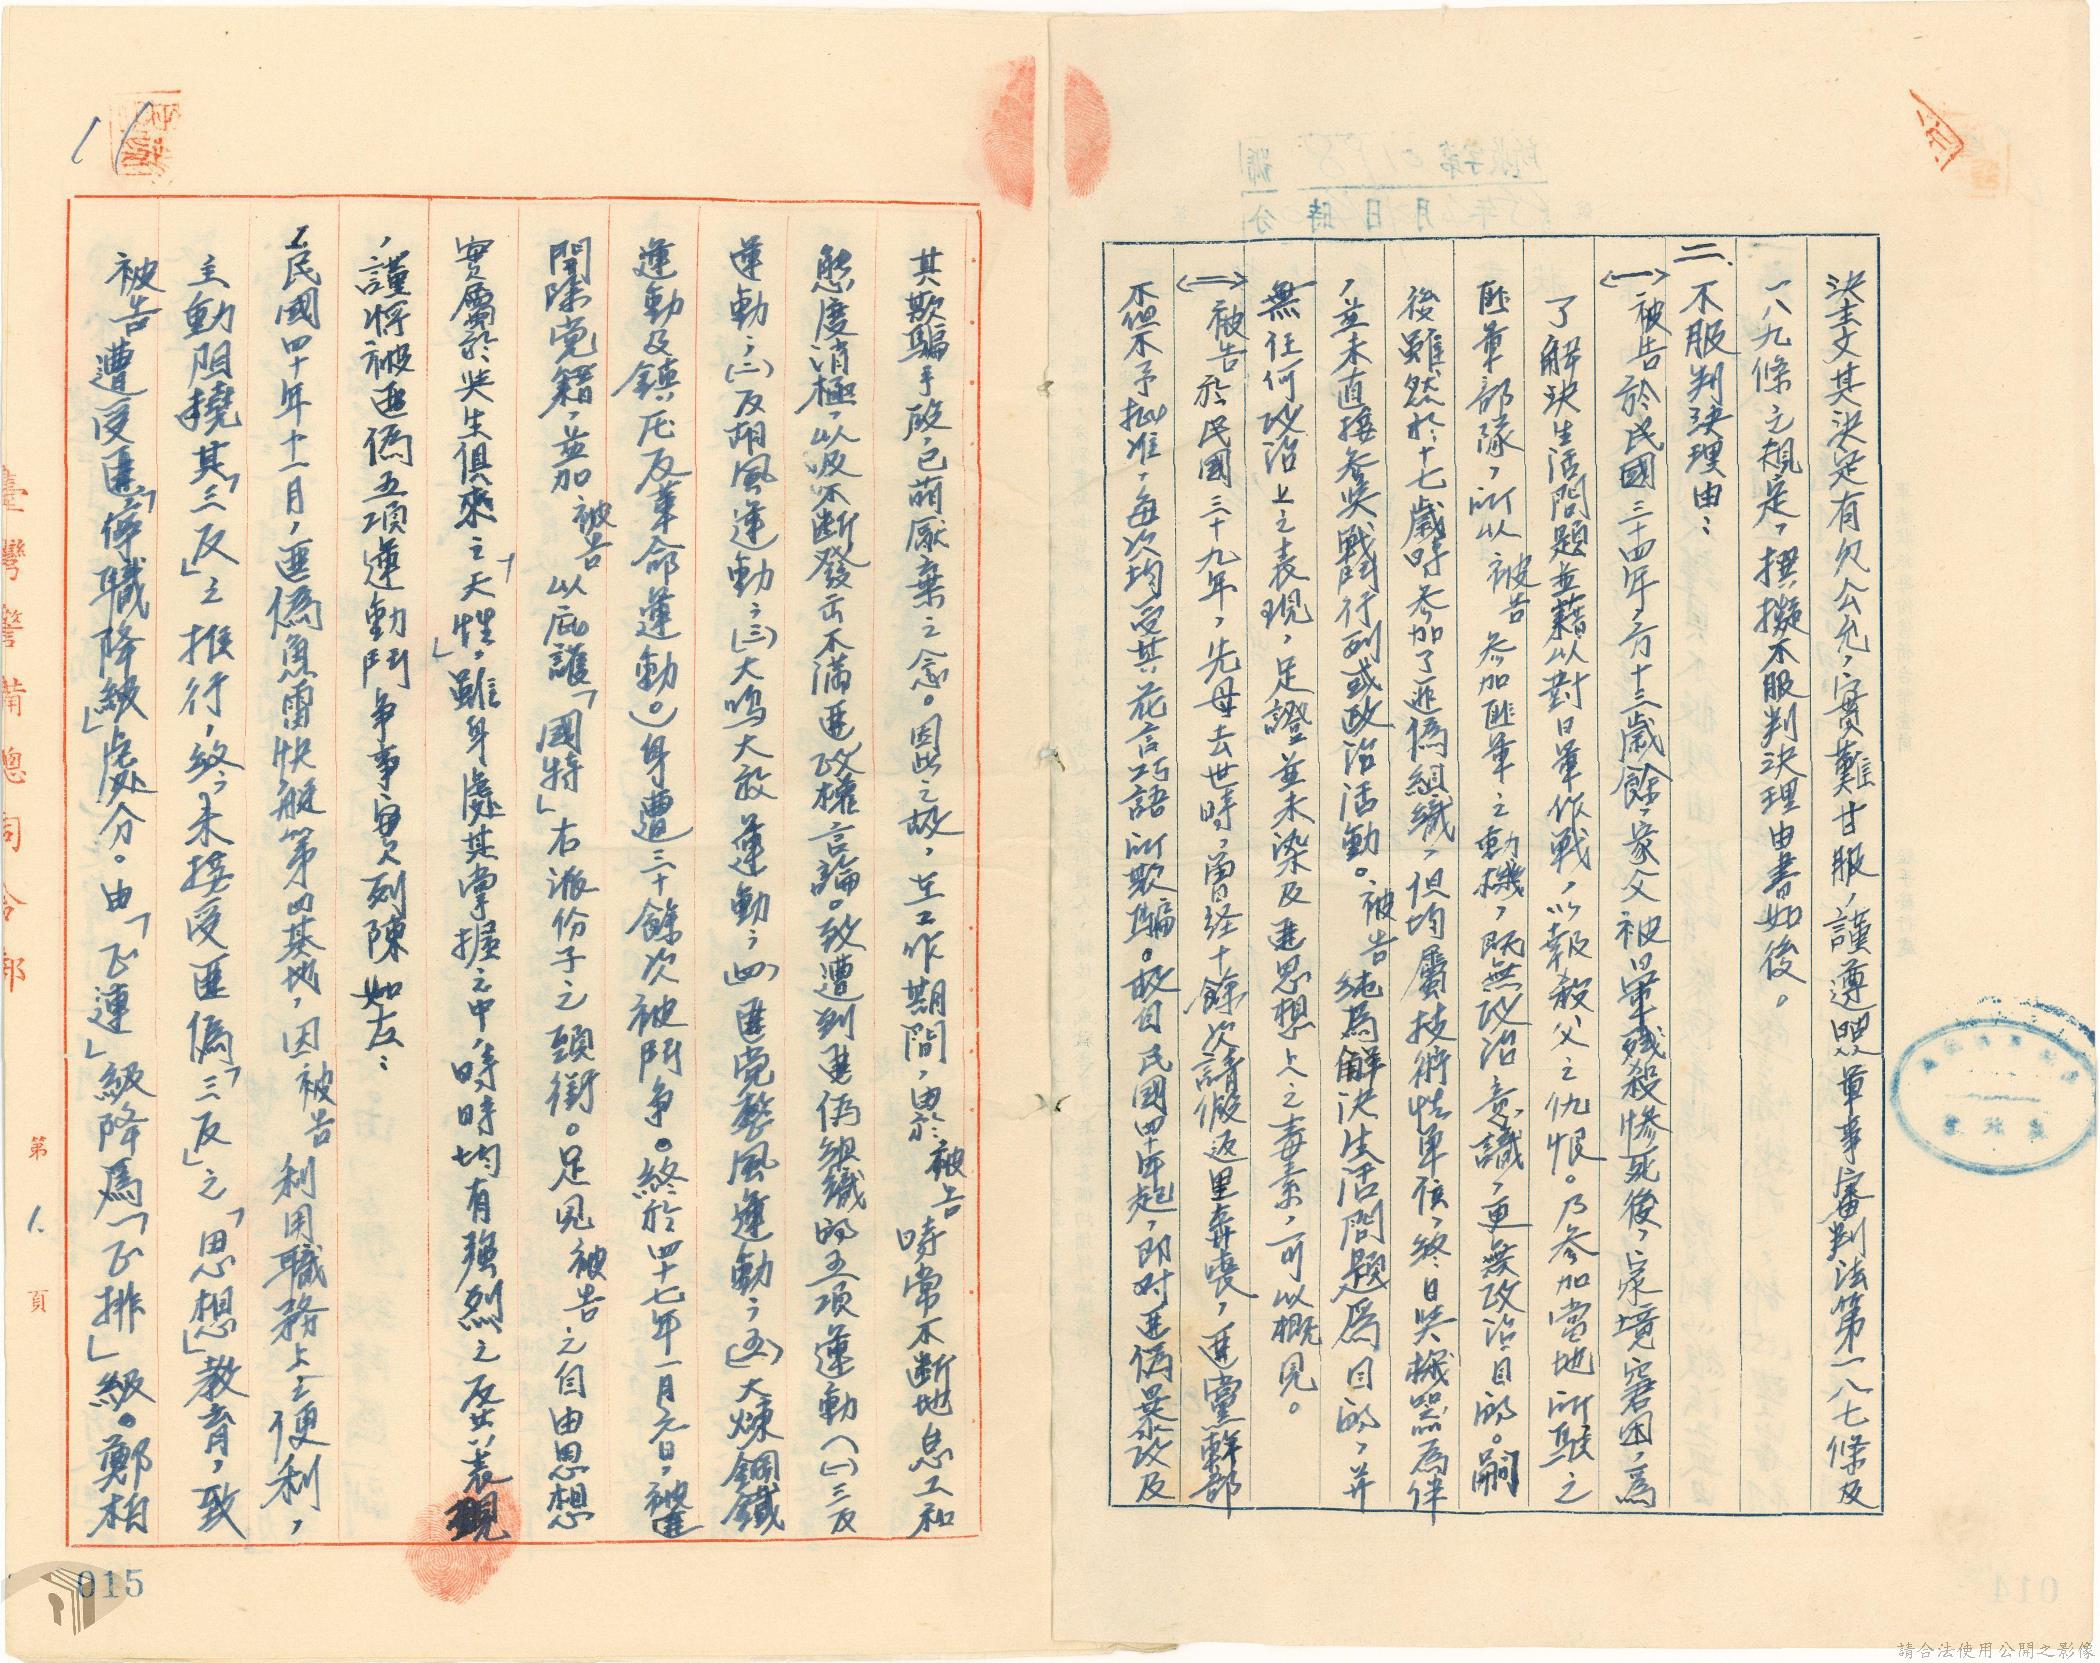 決主文其決定有欠公允，實難甘服，謹遵照軍事審判法第一八七條及
一八九條之規定，撰擬不服判決理由書如後。
二.不服判決理由：
(一)被告於民國三十四年，方十三歲餘，家父被日軍殘殺慘死後，家境窘困，為
了解決生活問題並藉以對日軍作戰，以報殺父之仇恨。乃參加當地所駐之
匪軍部隊，所以被告參加匪軍之動機，既無政治意識，更無政治目的。嗣
後雖然於十七歲時參加了匪偽組織，但均屬技術性單位，終日與機器為伴
，並未直接參與戰鬥行列或政治活動。被告純為解決生活問題為目的，并
無任何政治上之表現，足證並未染及匪思想上之毒素，可以概見。
(二)被告於民國三十九年，先母去世時，曾经十餘次請假返里奔喪，匪黨幹部
不但不予批准，每次均受其花言巧語所欺騙。故自民國四十年起，即对匪偽暴政及
其欺騙手段，已萌厭棄之念。因此之故，在工作期間，由於被告時常不断地怠工和
態度消極，以及不断發出不滿匪政權言論。致遭到匪偽組織的五項運動（(一)三反
運動；(二)反胡風運動；(三)大鳴大放運動；(四)匪党整風運動；(五)大煉鋼鐵
運動及鎮压反革命運動。）身遭三十餘次被鬥爭。終於四十七年一月元日，被匪
開除党籍，並加被告以庇護「國特」右派份子之頭銜。足見被告之自由思想
實屬於與生俱來之「天性」，雖身處其掌握之中，時時均有強烈之反共表現
，謹將被匪偽五項運動鬥爭事實列陳如左：
1.民國四十年十一月，匪偽魚雷快艇第四基地，因被告利用職務上之便利，
主動阻撓其「三反」之推行，終；未接受匪偽「三反」之「思想」教育，致
被告遭受匪「停職降級」處分。由「正連」級降為「正排」級。鄭柏
臺灣警備總司令部
第 1. 頁
015
014
請合法使用公開之影像